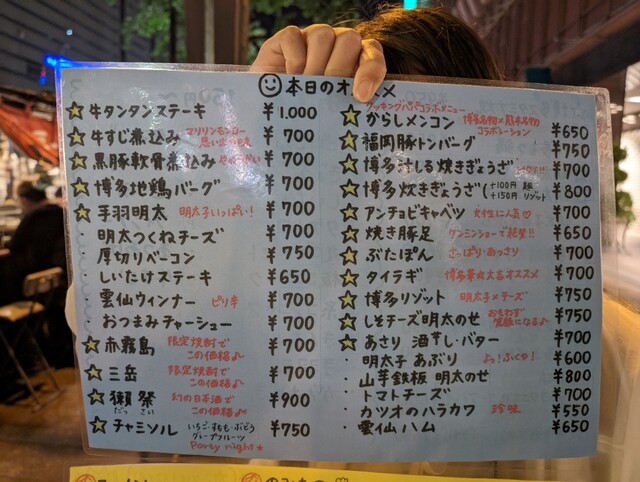 本日のオススメ
牛タンタンステーキ ¥1.000
牛すじ煮込み マリリンモンロー 思い出の味 ¥700
黒豚軟骨煮込み やわらかい ¥700
博多地鶏バーグ ¥700
手羽明太 明太子いっぱい! ¥700
明太つくねチーズ ¥700
厚切りベーコン ¥750
しいたけステーキ ¥650
雲仙ウィンナー ピリ辛 ¥700
おつまみチャーシュー ¥700
赤霧島 限定焼酎で この価格♪ ¥700
三岳 限定焼酎で この価格♪ ¥700
獺祭 だっさい 幻の日本酒で この価格♪ ¥900
チャミソル いちご・すもも・ぶどう グレープフルーツ ¥750
Party night★
クッキングパパコラボメニュー
からしメンコン 博多名物×熊本名物 コラボレーション ¥650
福岡豚トンバーグ ¥750
博多汁しる焼きぎょうざ ¥700
博多炊きぎょうざ(+100円 麺 +150円 リゾット ¥800
アンチョビキャベツ 女性に人気♡ ¥700
焼き豚足 ケンミンショーで絶賛!! ¥650
ぶたぽん さっぱり・あっさり ¥700
タイラギ 博多華丸大吉オススメ ¥700
博多リゾット 明太子×チーズ ¥750
しそチーズ明太のせ おもわず 笑顔になる♪ ¥750
あさり 酒蒸し・バター ¥700
明太子 あぶり よっ!ふくや! ¥600
山芋鉄板 明太のせ ¥800
トマトチーズ ¥700
カツオのハラカワ 珍味 ¥550
雲仙ハム ¥650